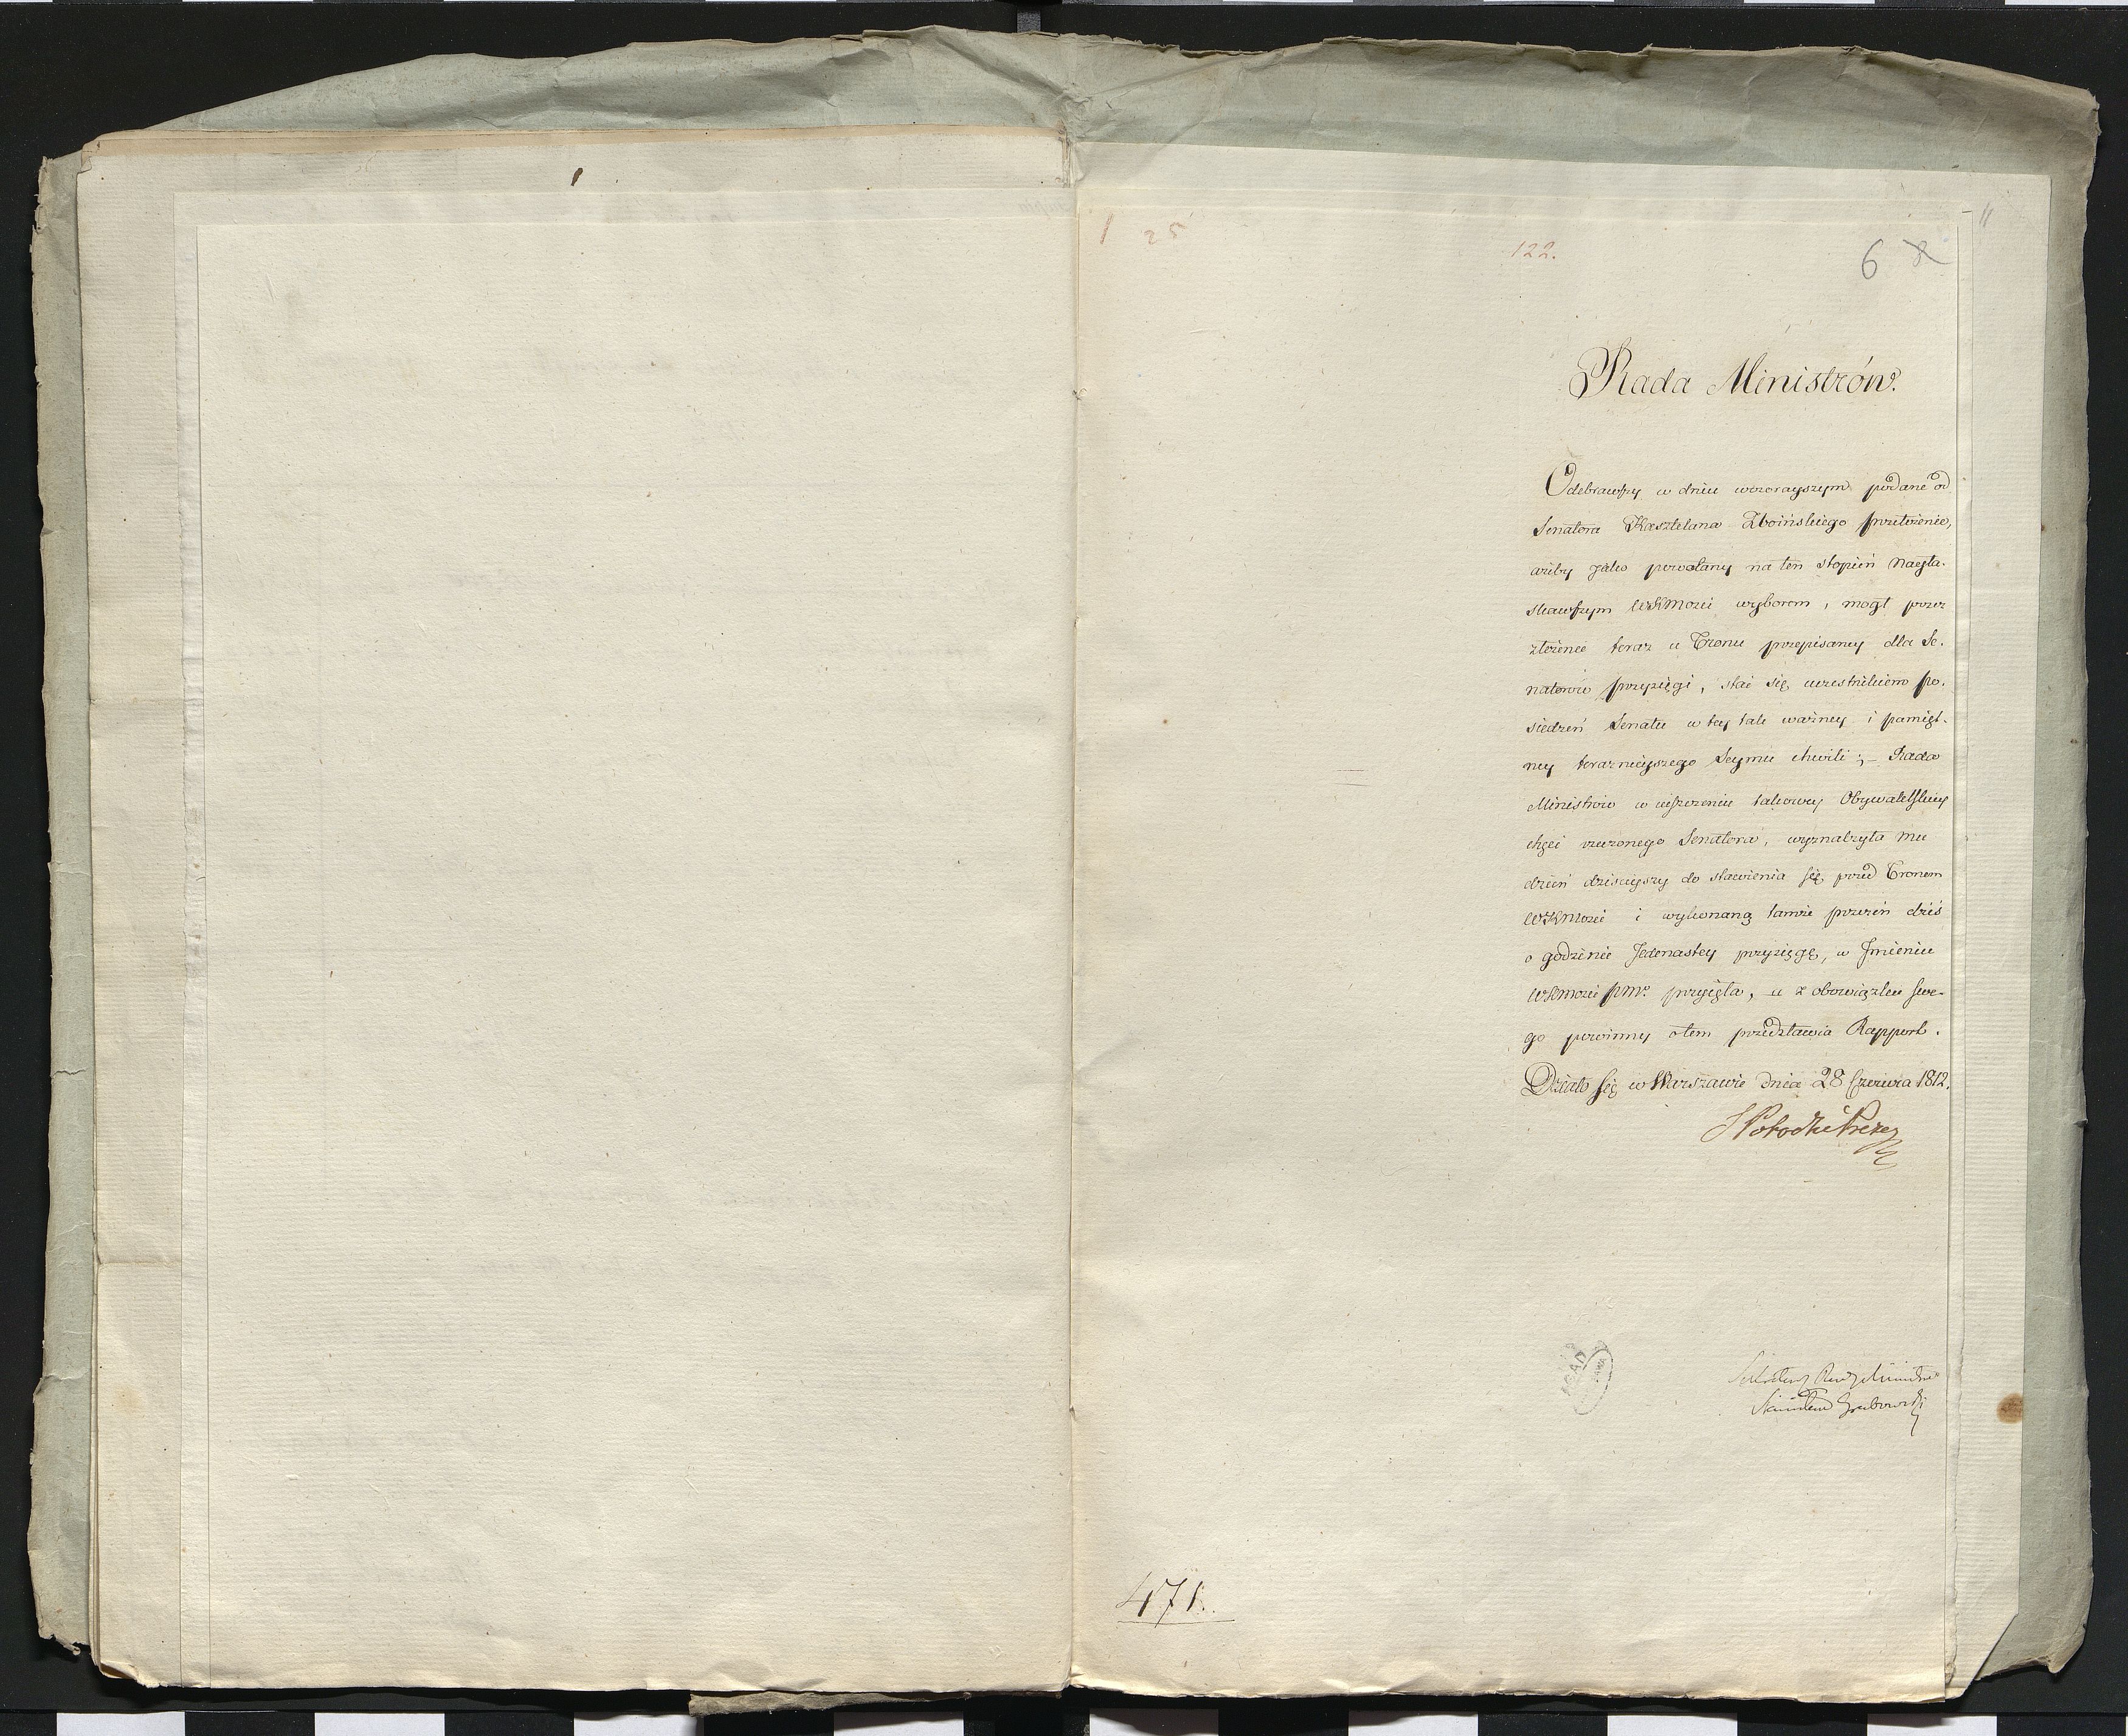 1 25
122.
6 8
Rada Ministrów.
Odebrawszy w dniu wczorayszym podane od
Senatora Kasztelana Zboińskiego przełożenie,
ażeby jako powołany na ten stopień Nayła-
skawszym WKMości wyborem, mógł przez
złożenie teraz u Tronu przepisaney dla Se-
natorów przysięgi, stać się uczestnikiem po-
siedzeń Senatu w tey tak ważney i pamięt-
ney teraznieyszego Seymu chwili; – Rada
Ministrów w uiszczeniu takowey Obywatelskiey
chęci rzeczonego Senatora, wyznaczyła mu
dzień dzisieyszy do stawienia się przed Tronem
WKMości i wykonaną tamże przezeń dziś
o godzinie Jedenastey przysięgę, w Jmieniu
WKMości PMº przyięła, a z obowiązku swe-
go powinny o tem przedstawia Rapport.
Działo się w Warszawie dnia 28 Czerwca 1812.
S Potocki Prezes
AGAD
Sekretarz Rady Ministrów
Stanisław Grabowski
471.